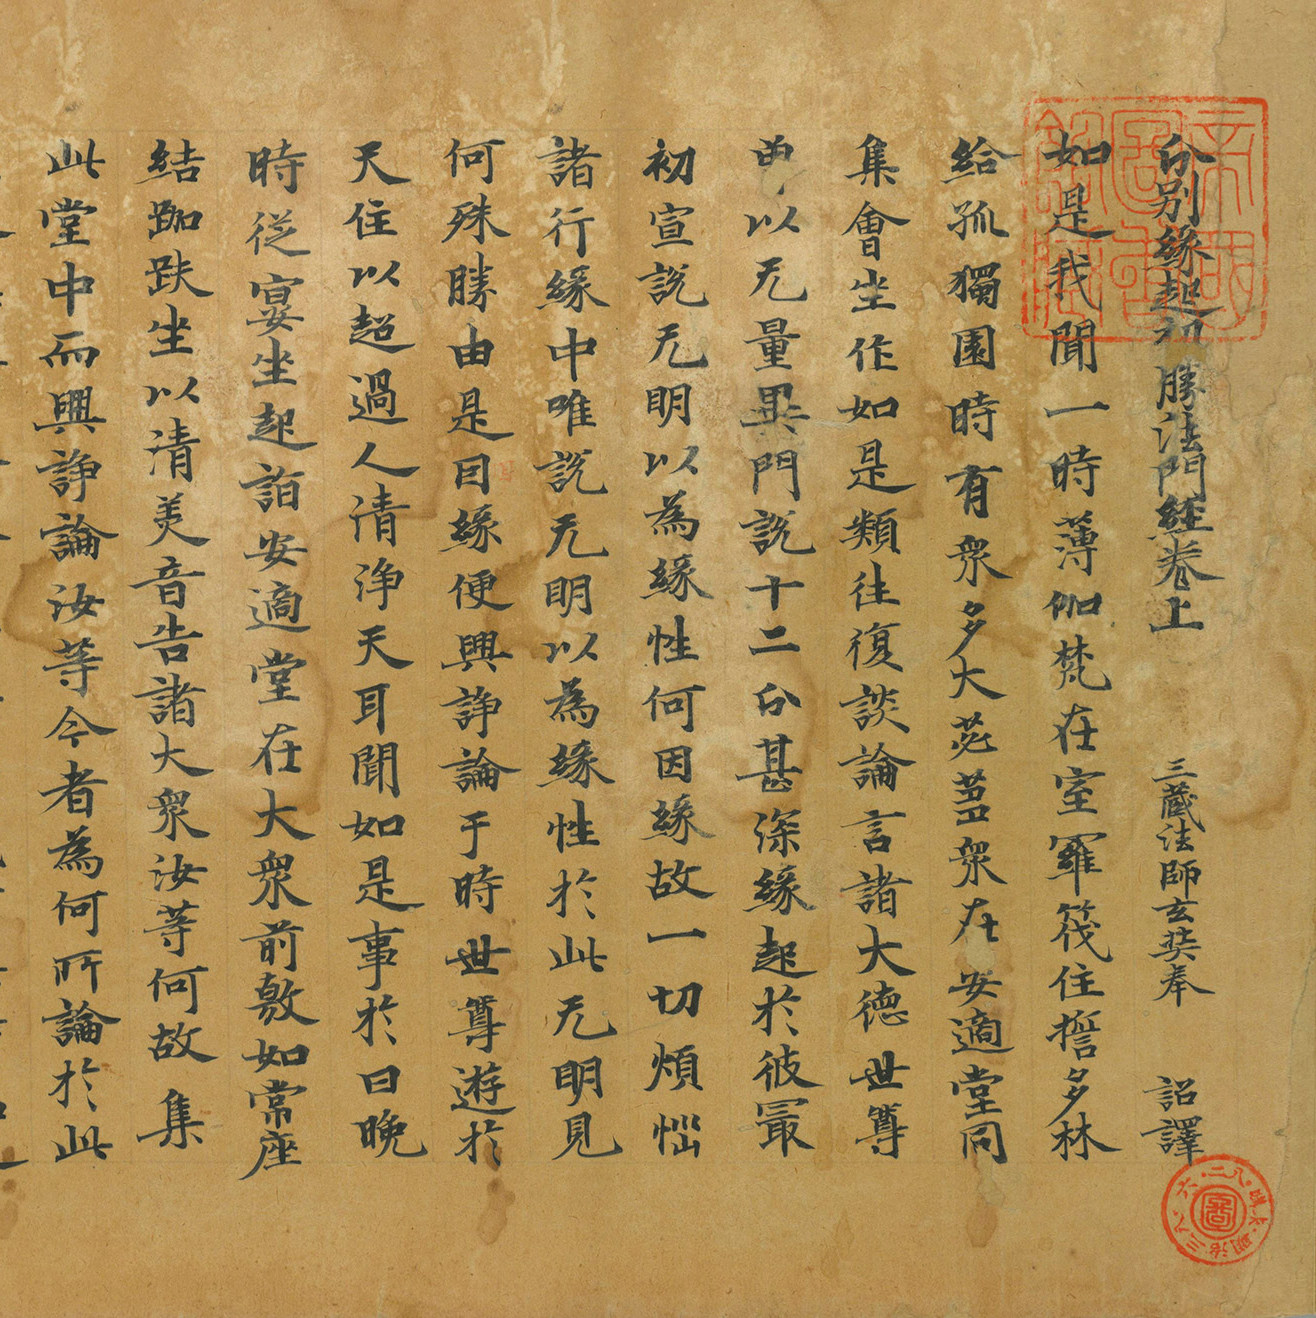 分別緣起初勝法門經卷上 三藏法師玄奘奉 詔譯
如是我聞一時薄伽梵在室羅筏住誓多林
給孤獨園時有眾多大苾芻眾在安適堂同
集會坐作如是類往復談論言諸大德世尊
曾以无量異門說十二分甚深緣起於彼最
初宣說无明以為緣性何因緣故一切煩惱
諸行緣中唯說无明以為緣性於此无明見
何殊勝由是因緣便興諍論于時世尊遊於
天住以超過人清淨天耳聞如是事於日晚
時從宴坐起詣安適堂在大眾前敷如常座
結跏趺坐以清美音告諸大眾汝等何故集
此堂中而興諍論汝等今者為何所論於此
帝國圖書館藏
圖 明治三八 六 二八 購求